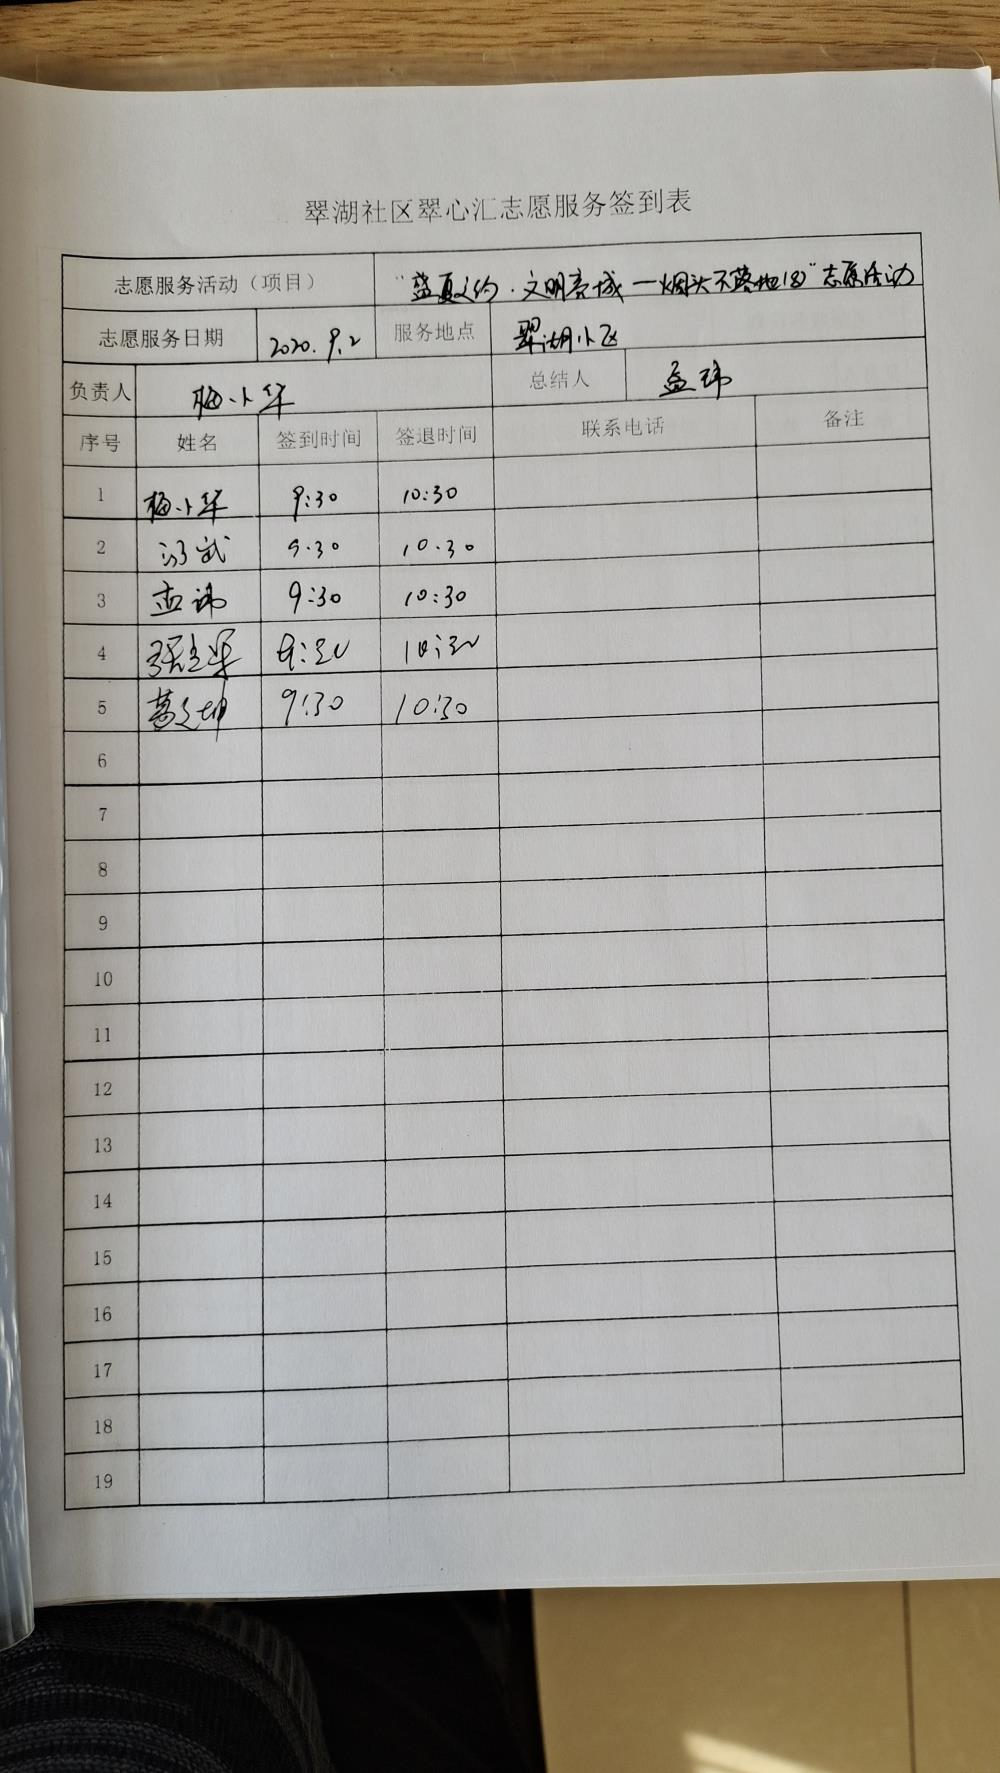 翠湖社区翠心汇志愿服务签到表
志愿服务活动（项目） “盛夏之约·文明亮城—烟头不落地”志愿活动
志愿服务日期 2020.9.2 服务地点 翠湖小区
负责人 梅小华 总结人 孟玮
序号 姓名 签到时间 签退时间 联系电话 备注
1 梅小华 9:30 10:30
2 9:30 10:30
3 孟玮 9:30 10:30
4 9:30 10:30
5 9:30 10:30
6
7
8
9
10
11
12
13
14
15
16
17
18
19